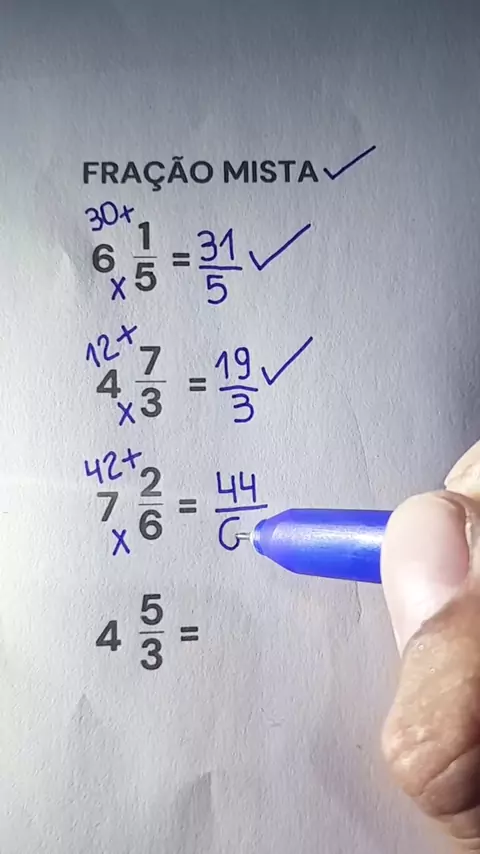 FRAÇÃO MISTA ✓
30+
6 x 1/5 = 31/5 ✓
12+
4 x 7/3 = 19/3 ✓
42+
7 x 2/6 = 44/6
4 5/3 =